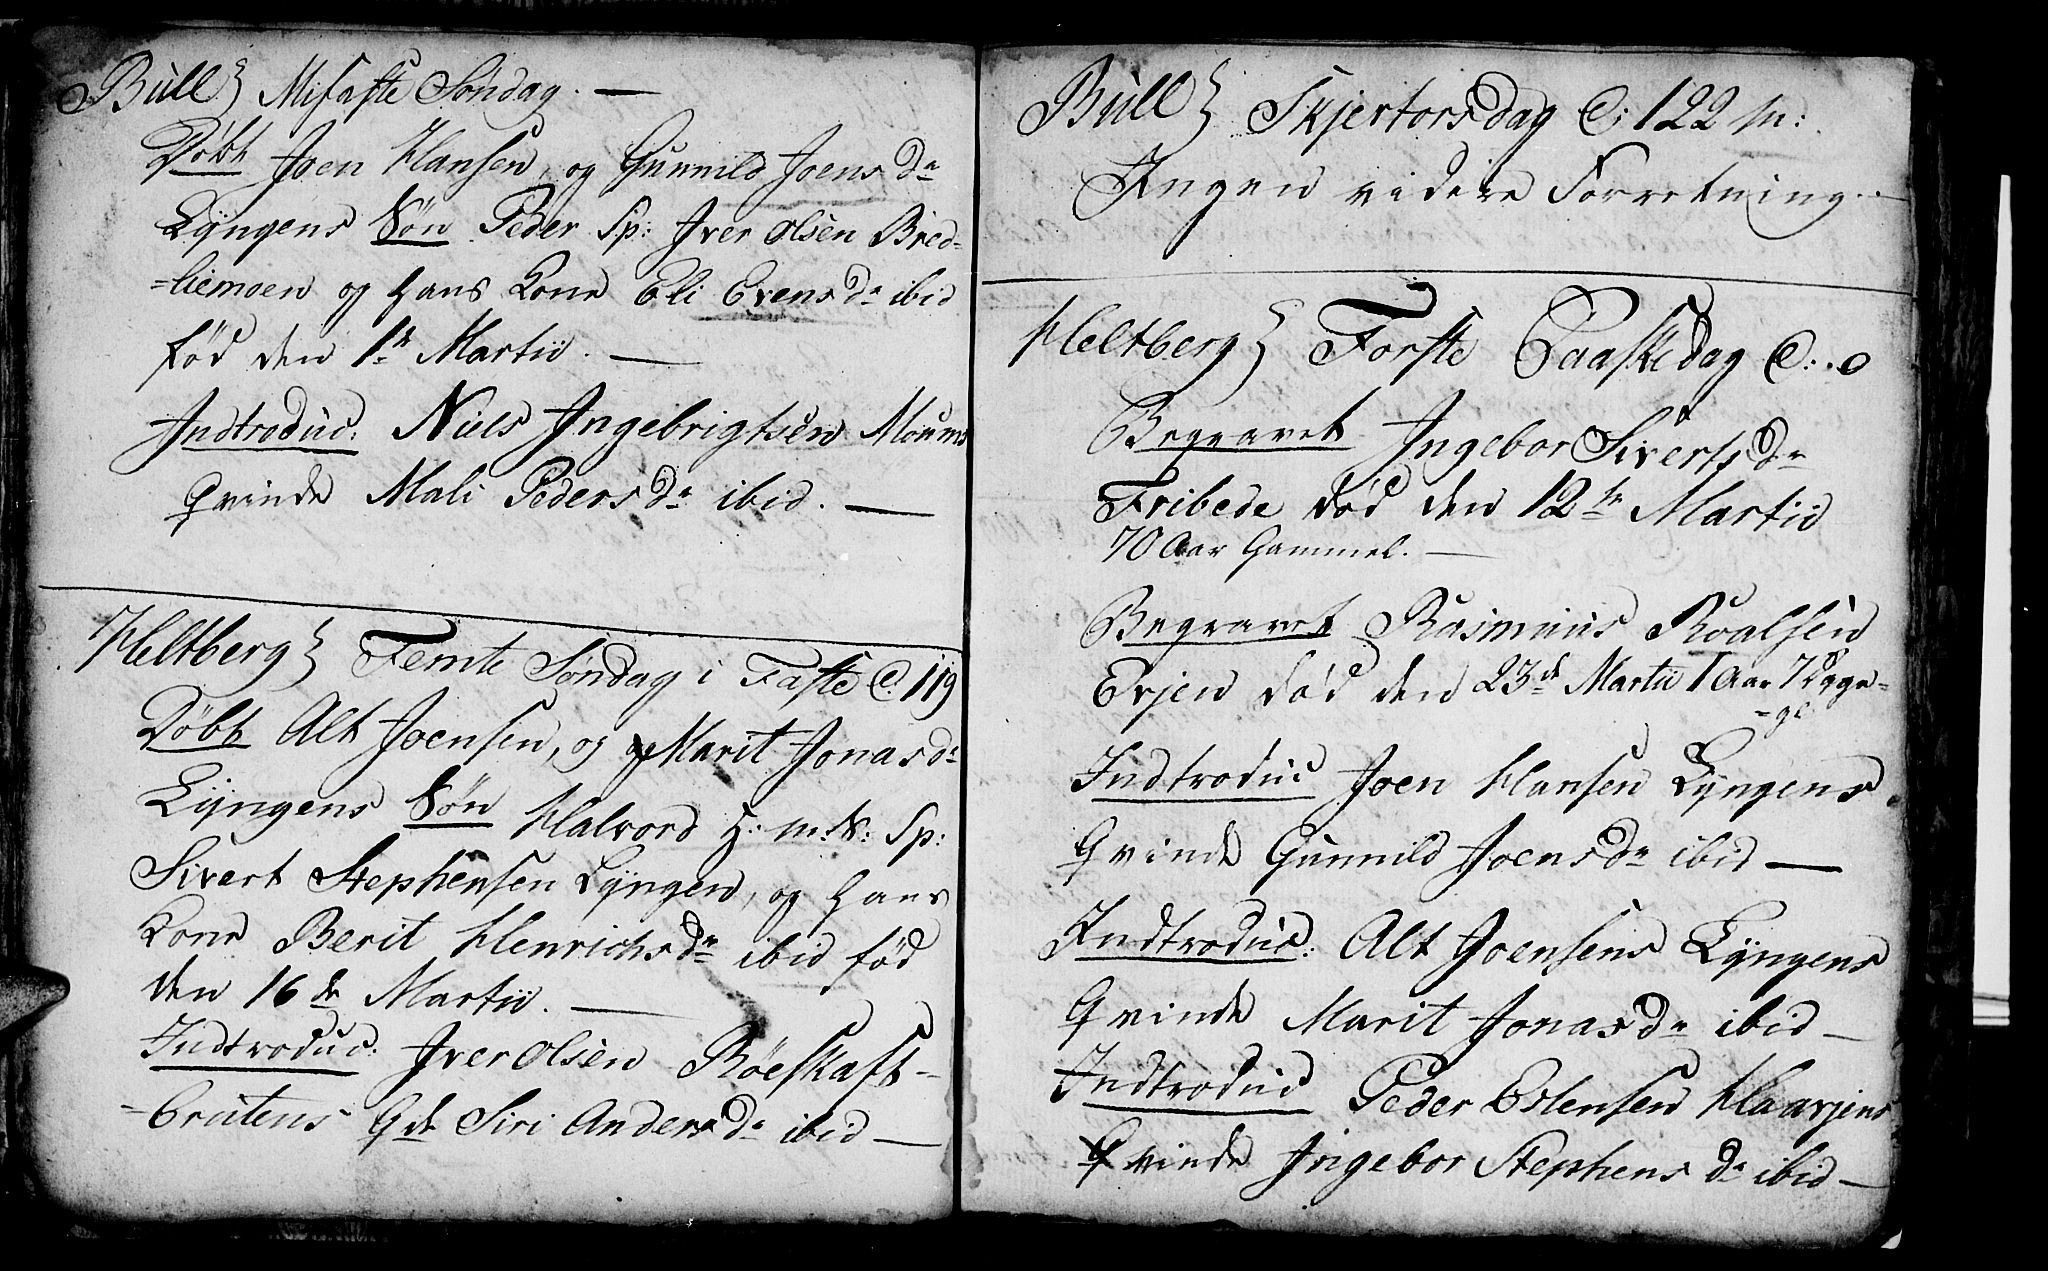 Bull} Misfaste Søndag. —
Døbt Joen Hansen, og Gunnild Joens Dr
Lÿngens Søn Peder Sp: Iver Olsen Bred-
=liemoen og hans Kone Eli Evens Dr ibid
fød den 1te Martii. —
Indtroduc: Niels Ingebrigtsen Moums
Qvinde Mali Peders Dr ibid. —
Heltberg} Femte Søndag i Faste C. 119
Døbt Alt Joensen, og Marit Jonas dr
Lÿngens Søn Halvord H: m: K: Sp:
Sivert Stephensen Lÿngen, og hans
Kone Berit Henrichs Dr ibid fød
den 16 de Martii. —
Indtroduc: Iver Olsen Böeskaft-
=Bratens Qde Siri Anders Dr ibid —
Bull} Skjertorsdag C: 122 m:
Ingen videre Forretning. —
Heltberg} Forste Paaskedag C: . 0
Begravet Ingebor Siverts Dr
Fribede død den 12 te Martii
70 Aar Gammel. —
Begravet Rasmuus Roalsen
Evjen død den 23 de Martii 1 Aar 7 Dage
Indtroduc Joen Hansen Lÿngens
Qvinde Gunnild Joens Dr ibid —
Indtroduc: Alt Joensens Lÿngens
Qvinde Marit Jonas Dr ibid —
Indtroduc Peder Estensen Haarjens
Qvinde Ingebor Stephens Dr ibid —